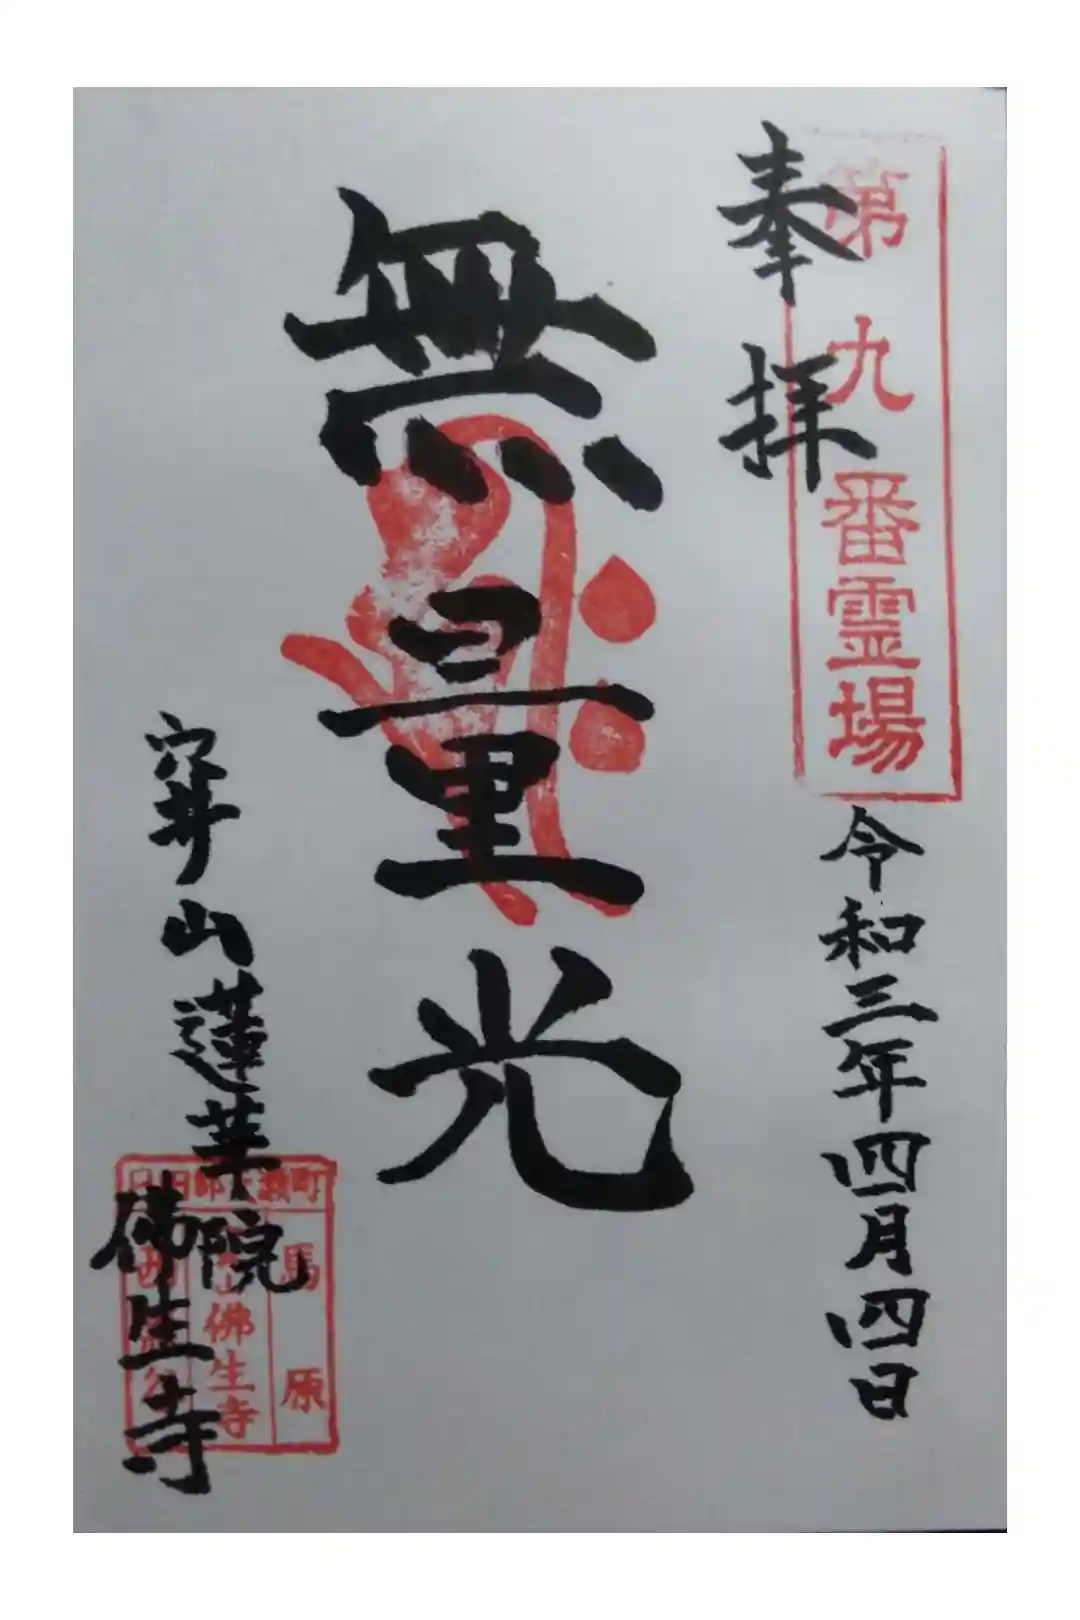 第九番霊場
奉拝
令和三年四月四日
無量光
穿山蓮華院
佛生寺
馬原
佛生寺